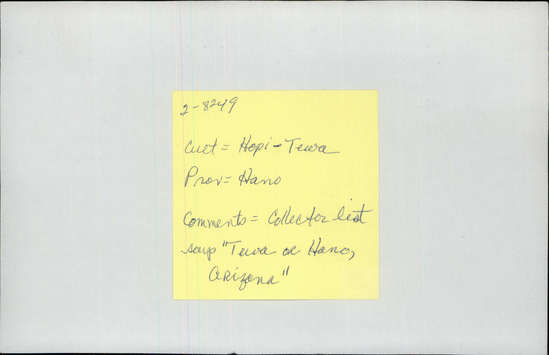 2-8249
Cult = Hopi-Tewa
Prov = Hano
Comments = Collector list
says "Tewa or Hano,
Arizona"